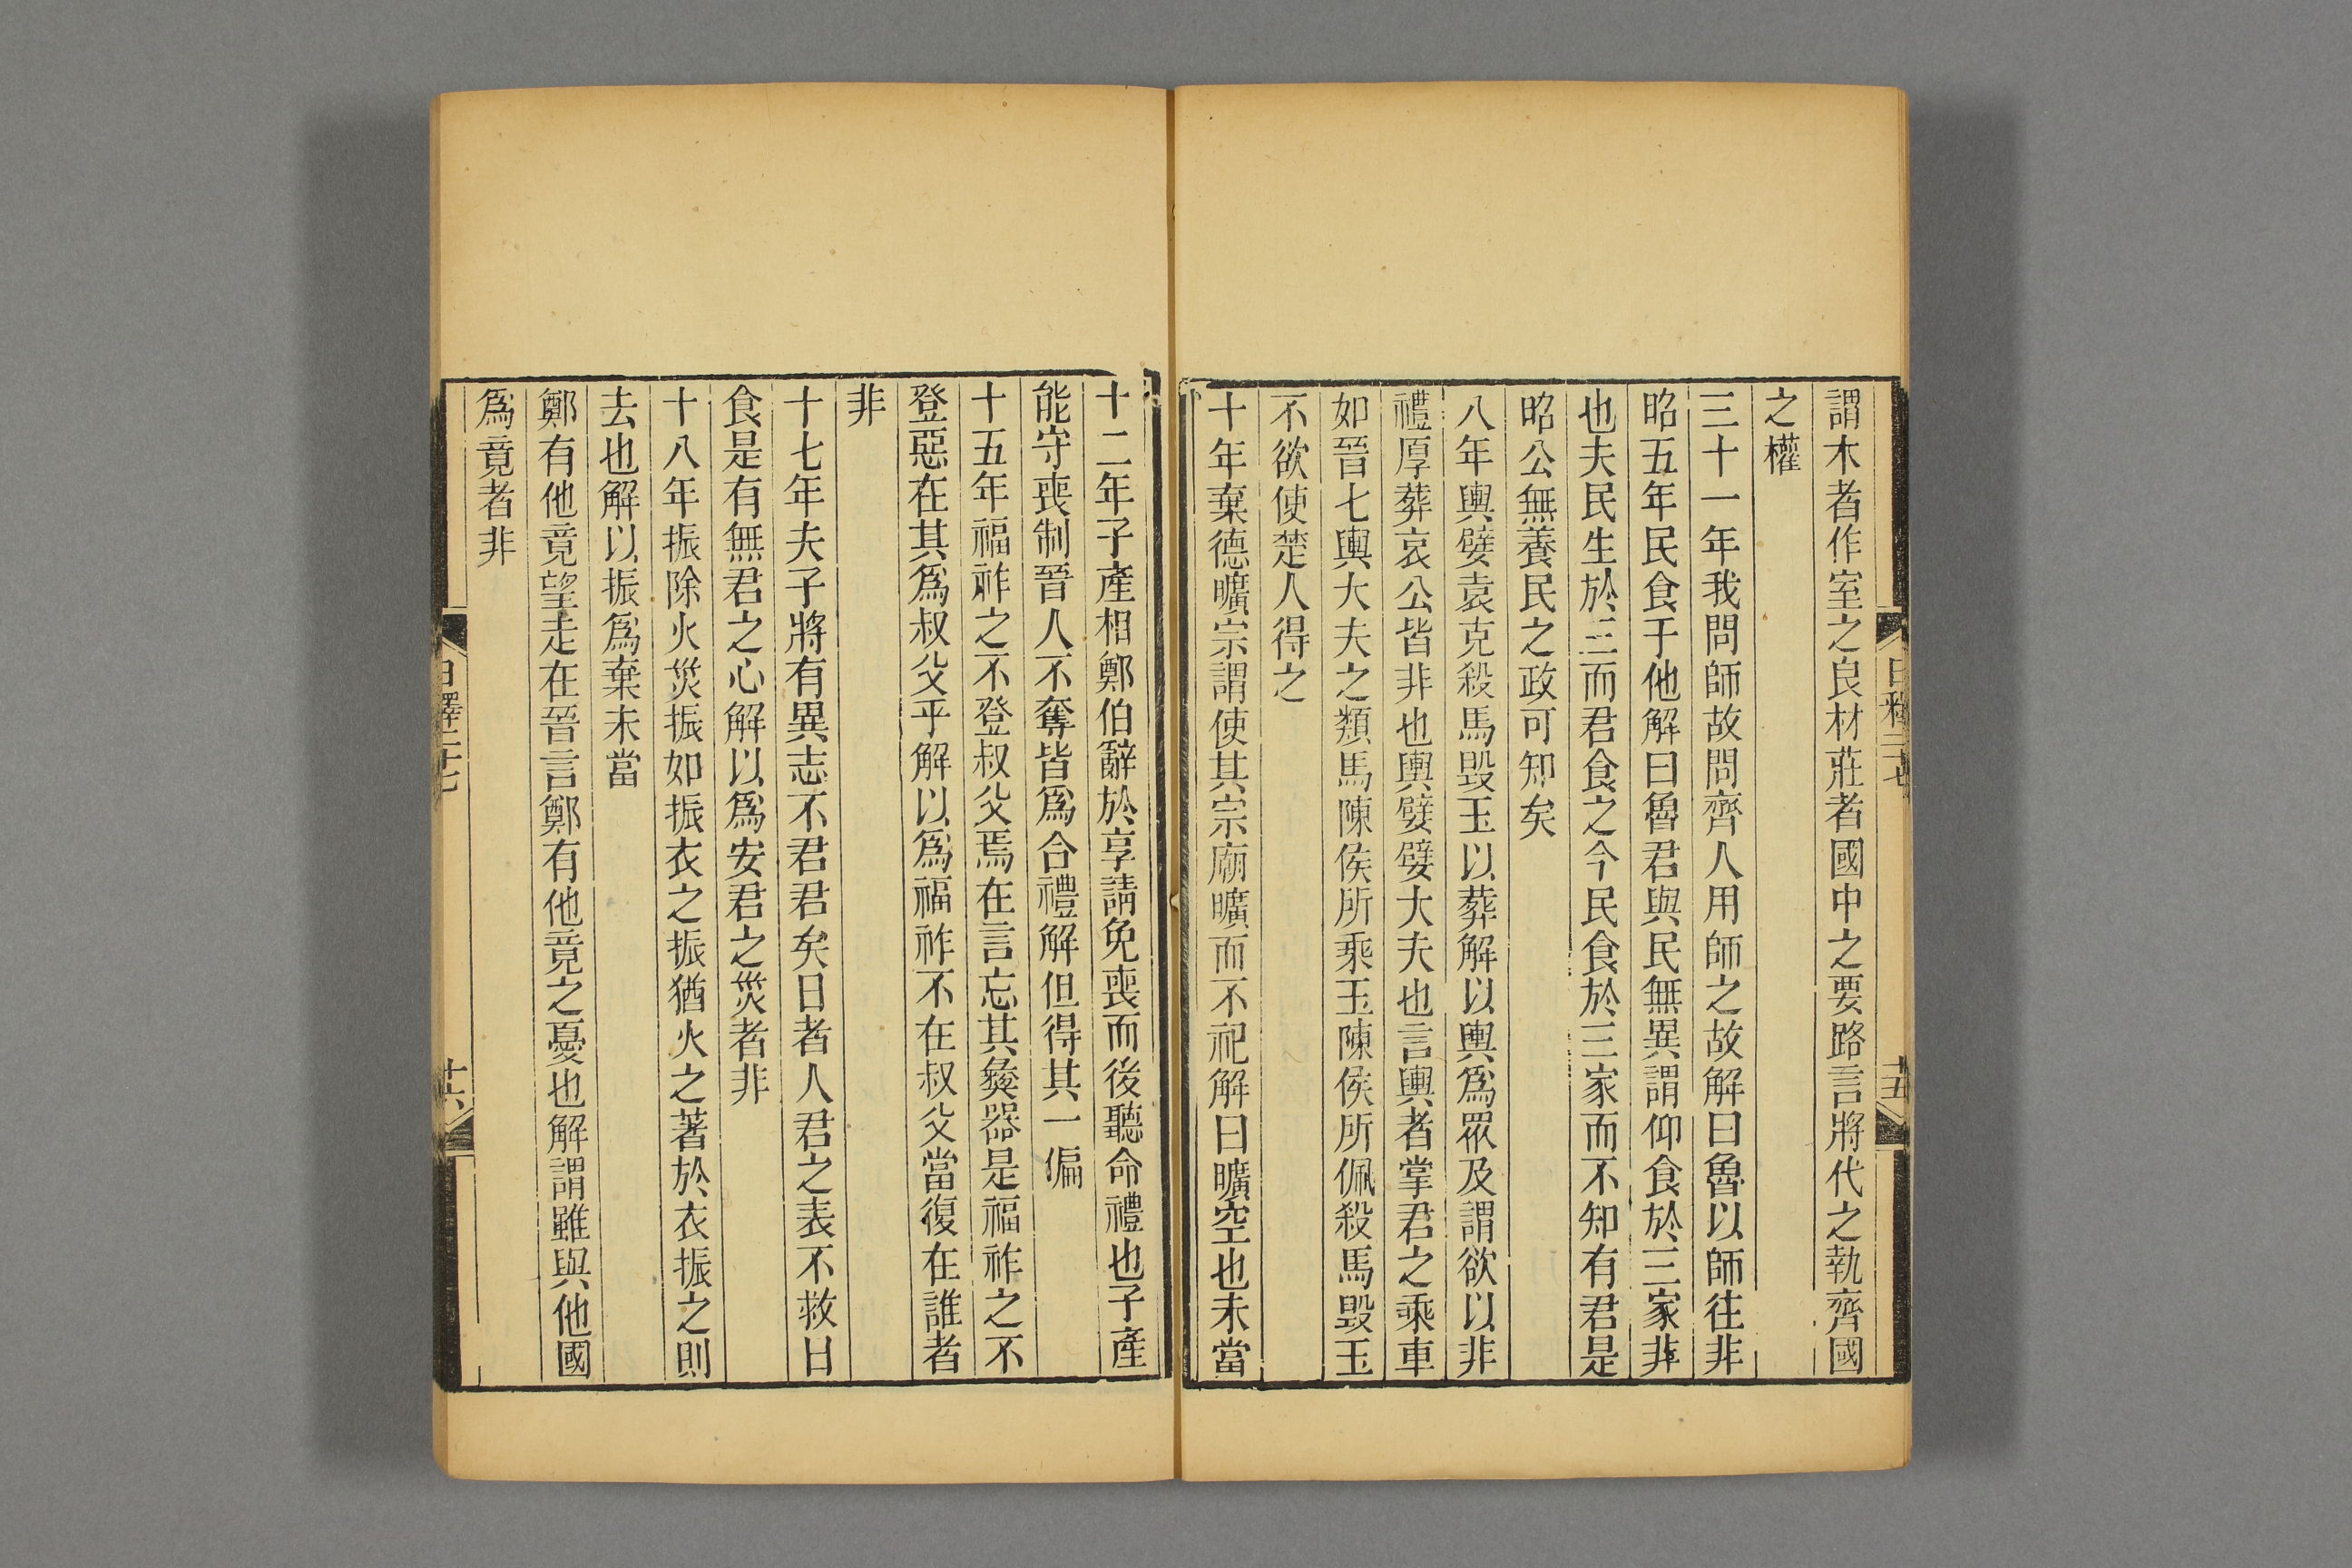 謂木者作室之良材莊者國中之要路言將代之執齊國
之權
三十一年我問師故問齊人用師之故解曰魯以師往非
昭五年民食于他解曰魯君與民無異謂仰食於三家非
也夫民生於三而君食之今民食於三家而不知有君是
昭公無養民之政可知矣
八年輿嬖袁克殺馬毀玉以葬解以輿爲眾及謂欲以非
禮厚葬哀公皆非也輿嬖嬖大夫也言輿者掌君之乘車
如晉七輿大夫之類馬陳侯所乘玉陳侯所佩殺馬毀玉
不欲使楚人得之
十年棄德曠宗謂使其宗廟曠而不祀解曰曠空也未當
十五
十二年子產相鄭伯辭於享請免喪而後聽命禮也子產
能守喪制晉人不奪皆爲合禮解但得其一偏
十五年福祚之不登叔父焉在言忘其彝器是福祚之不
登惡在其爲叔父乎解以爲福祚不在叔父當復在誰者
非
十七年夫子將有異志不君君矣日者人君之表不救日
食是有無君之心解以爲安君之災者非
十八年振除火災振如振衣之振猶火之著於衣振之則
去也解以振爲棄未當
鄭有他竟望走在晉言鄭有他竟之憂也解謂雖與他國
爲竟者非
日釋二十七
十六